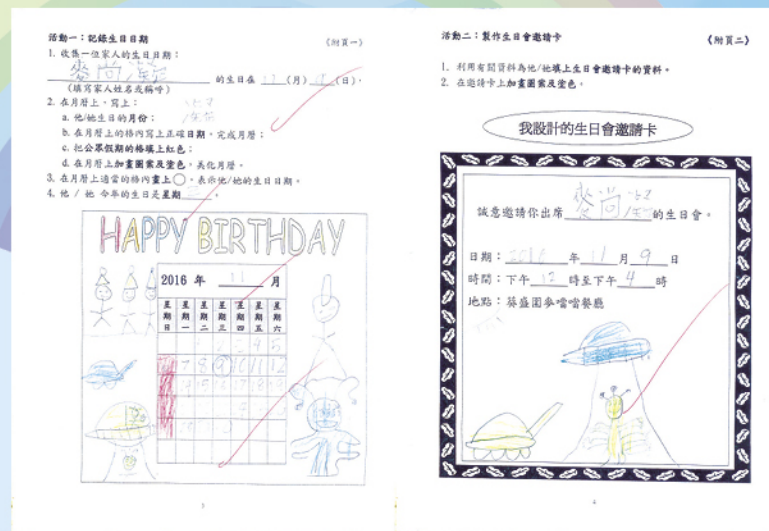 活動一：記錄生日日期
《附頁一》
1. 收集一位家人的生日日期：
麥尚 的生日在 11 (月) (日)。
(填寫家人姓名或稱呼)
2. 在月曆上，寫上：
a. 他/她生日的月份；
b. 在月曆上的格內寫上正確日期，完成月曆；
c. 把公眾假期的格填上紅色；
d. 在月曆上加畫圖案及塗色，美化月曆。
3. 在月曆上適當的格內畫上○，表示他/她的生日日期。
4. 他 / 她 今年的生日是星期 三 。
HAPPY BIRTHDAY
2016 年 11 月
星期日 星期一 星期二 星期三 星期四 星期五 星期六
1 2 3 4 5
7 8 9 10 11 12
14 15 16 17 18 19
3
活動二：製作生日會邀請卡
《附頁二》
1. 利用有關資料為他/她填上生日會邀請卡的資料。
2. 在邀請卡上加畫圖案及塗色。
我設計的生日會邀請卡
誠意邀請你出席 麥尚 的生日會。
日期：2016 年 11 月 9 日
時間：下午 12 時至下午 4 時
地點：葵盛圍麥噹噹餐廳
4